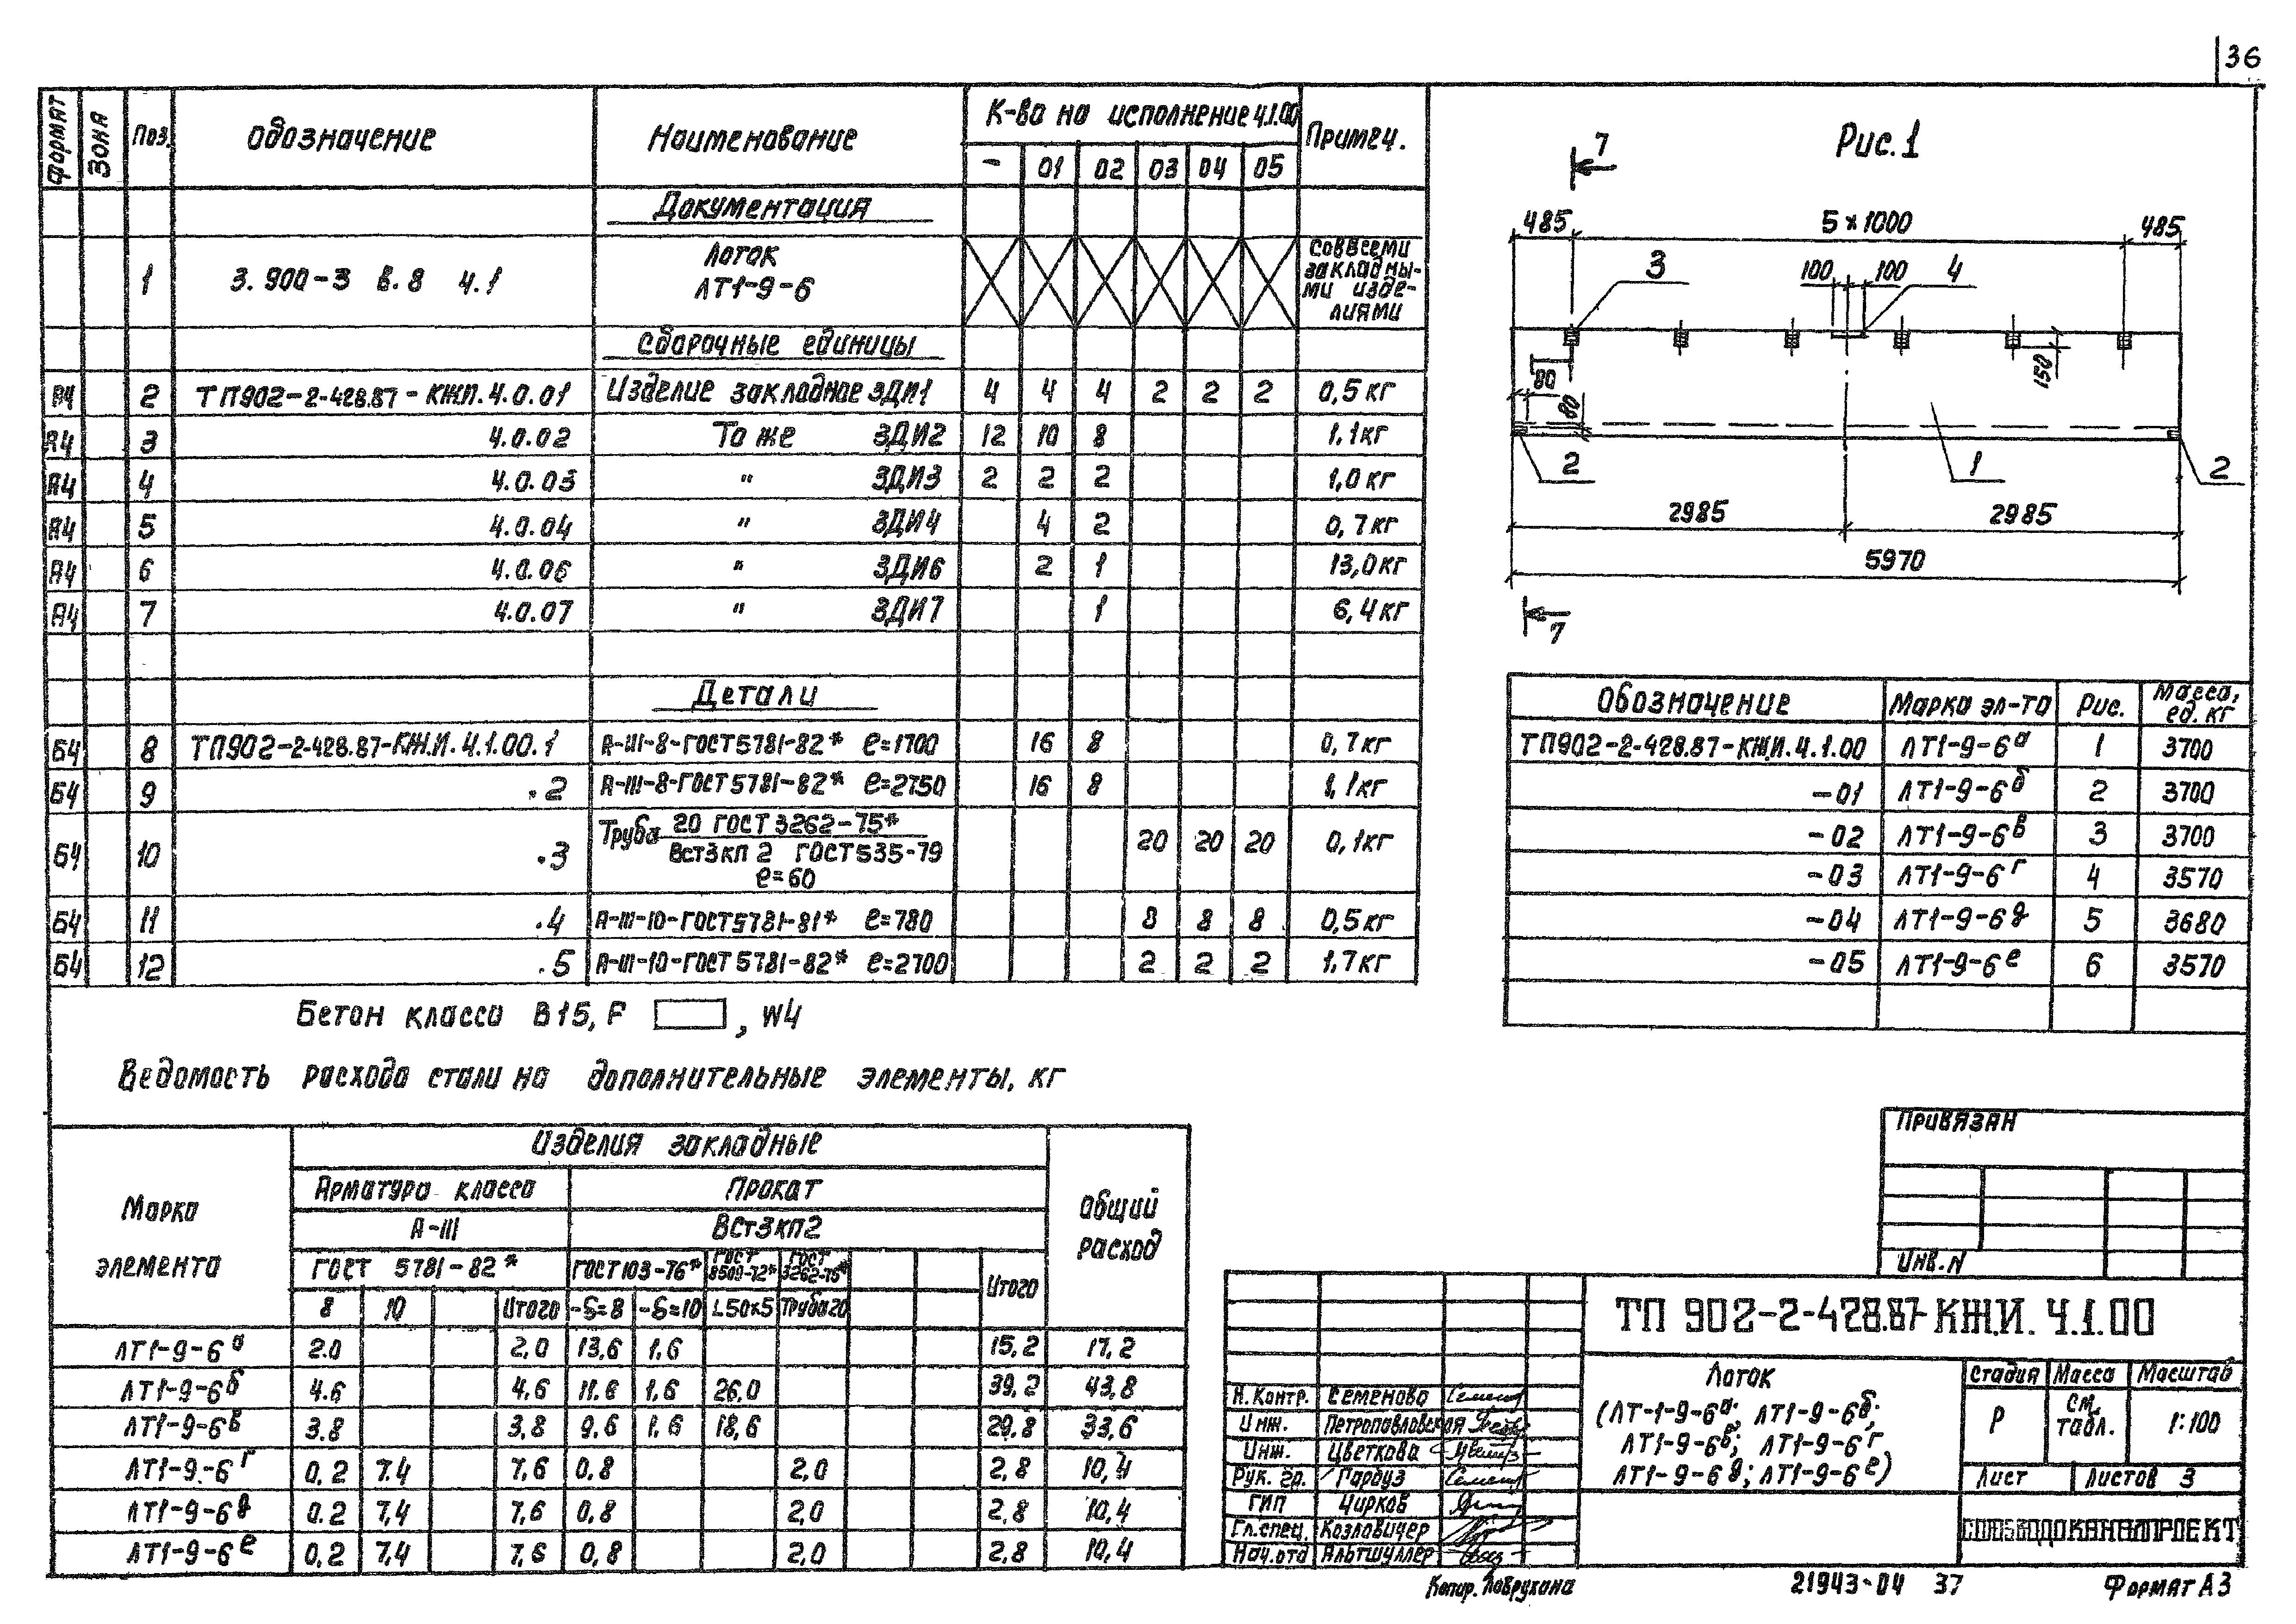 36
Формат Зона Поз. Обозначение Наименование К-во на исполнение Ч.1.00 Примеч.
– 01 02 03 04 05
Документация
1 3.900-3 в.8 ч.1 Лоток ЛТ1-9-6 Со всеми закладны-ми изде-лиями
Сборочные единицы
А4 2 ТП902-2-428.87-КЖИ.Ч.0.01 Изделие закладное ЗДИ1 4 4 4 2 2 2 0,5кг
А4 3 Ч.0.02 То же ЗДИ2 12 10 8 1,1кг
А4 4 Ч.0.03 " ЗДИ3 2 2 2 1,0кг
А4 5 Ч.0.04 " ЗДИ4 4 2 0,7кг
А4 6 Ч.0.06 " ЗДИ6 2 1 13,0кг
А4 7 Ч.0.07 " ЗДИ7 1 6,4кг
Детали
Б4 8 ТП902-2-428.87-КЖ.И.Ч.1.00.1 А-III-8-ГОСТ5781-82* ℓ=1700 16 8 0,7кг
Б4 9 .2 А-III-8-ГОСТ5781-82* ℓ=2750 16 8 1,1кг
Б4 10 .3 Труба 20 ГОСТ 3262-75* 20 20 20 0,1кг
Вст3кп2 ГОСТ535-79
ℓ=60
Б4 11 .4 А-III-10-ГОСТ5781-81* ℓ=780 8 8 8 0,5кг
Б4 12 .5 А-III-10-ГОСТ5781-82* ℓ=2700 2 2 2 1,7кг
Бетон класса В15, F , W4
Ведомость расхода стали на дополнительные элементы, кг
Марка элемента Изделия закладные Общий расход
Арматура класса Прокат
А-III ВСт3кп2
ГОСТ 5781-82* ГОСТ103-76* ГОСТ 8509-72* ГОСТ 3262-75* Итого
8 10 Итого -δ=8 -δ=10 L50×5 Труба20
ЛТ1-9-6а 2.0 2,0 13,6 1,6 15,2 17,2
ЛТ1-9-6б 4.6 4,6 11.6 1,6 26,0 39,2 43,8
ЛТ1-9-6в 3.8 3,8 9.6 1,6 18,6 29.8 33,6
ЛТ1-9-6г 0.2 7.4 7,6 0.8 2,0 2,8 10,4
ЛТ1-9-6д 0.2 7,4 7,6 0.8 2,0 2,8 10,4
ЛТ1-9-6е 0,2 7,4 7,6 0,8 2,0 2.8 10,4
Рис.1
7
485 5×1000 485
3 100 100 4
80 80 150
2 1 2
2985 2985
5970
7
Обозначение Марка эл-та Рис. Масса, ед. кг
ТП902-2-428.87-КЖ.И.Ч.1.00 ЛТ1-9-6а 1 3700
-01 ЛТ1-9-6б 2 3700
-02 ЛТ1-9-6в 3 3700
-03 ЛТ1-9-6г 4 3570
-04 ЛТ1-9-6д 5 3680
-05 ЛТ1-9-6е 6 3570
Привязан
Инв.N
ТП 902-2-428.87-КЖ.И. Ч.1.00
Лоток
(ЛТ-1-9-6а; ЛТ1-9-6б;
ЛТ1-9-6в; ЛТ1-9-6г
ЛТ1-9-6д; ЛТ1-9-6е)
Стадия Масса Масштаб
Р См. табл. 1:100
Лист Листов 3
СОЮЗВОДОКАНАЛПРОЕКТ
Н.контр. Семенова
Инж. Петропавловская
Инж. Цветкова
Рук. гр. Гарбуз
ГИП Чирков
Гл.спец. Козловичер
Нач.отд Альтшуллер
Копир. Лаврухина 21943-04 37 Формат А3